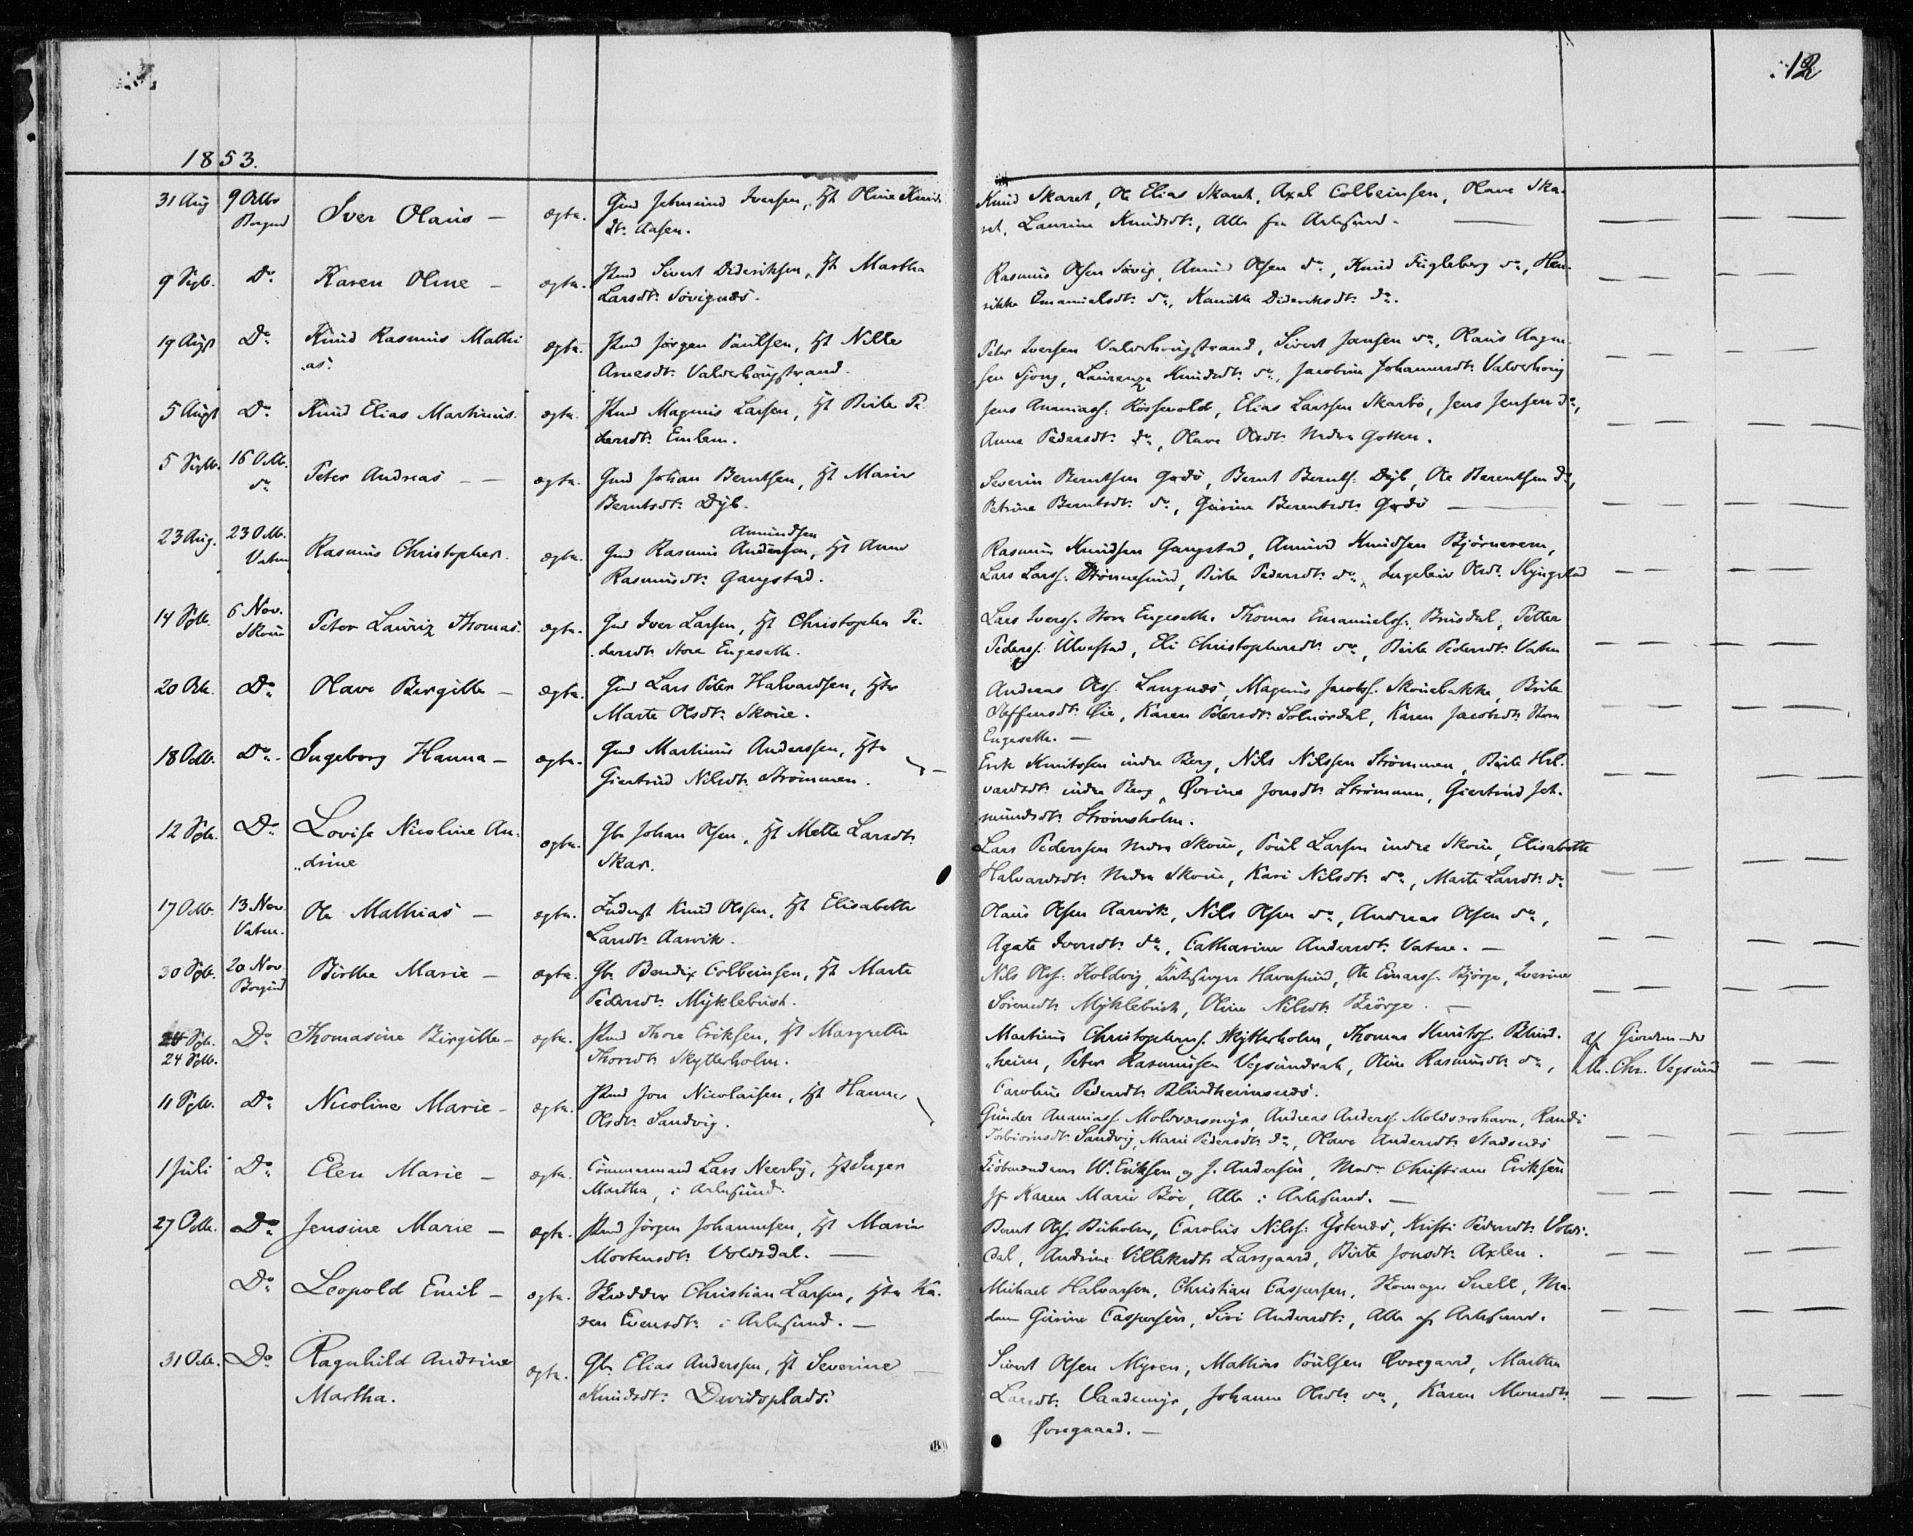 12
1853.
31 Aug 9 Octbr Borgund Iver Olaus — ægte. Gmd Jetmund Iversen, H Oline Knuds
dt. Aasen.
Knud Skaret, Ole Elias Skaret, Axel Colbeinsen, Olave Ska-
ret, Laurine Knudsdt:, Alle fra Aalesund. —
9 Sept. Do Karen Oline — ægte. Hmd Sivert Dideriksen, H Martha
Larsdt. Søvignæs.
Rasmus Olsen Søvig, Amund Olsen do, Knud Fugleberg do, Hen-
rikke Emanuelsdt. do, Dideriksdt: do.
19 Augst Do Knud Rasmus Mathi
as. ægte. Hmd Jørgen Paulsen, H Nille
Arnesdt. Valderhougstrand.
Peter Iversen Valderhougstrand, Sivert Jansen do, Olaus Aagen-
sen Sjong, Laurenze Knudsdt. do, Jacobine Johannesdt. Valderhoug
5 Augst Do Knud Elias Martinus. ægte. Hmd Magnus Larsen, H Birte Pe-
dersdt. Emlem.
Jens Ananiass: , Elias Larssen Skarbø, Jens Jensen do,
Anne Pedersdt. do, Olave Olsdt. Nedre Gotten.
5 Septb. 16 Octb. do Peter Andreas — — ægte. Gmd Johan Berntsen, H Marie
Berntsdt. Dyb.
Severin Berntsen Godø, Bernt Bernts: Dyb, Ole Berentsen do,
Petrine Berntsdt. do, Gurine Berentsdt. Godø —
23 Aug. 23 Octb. Vatne Rasmus Christopher. ægte. Amundsen
Gmd Rasmus Andersen, H Anne
Rasmusdt. Gangstad.
Rasmus Knudsen Gangstad, Amund Knudsen Bjørnerem,
Lars Larss: Strømmesund, Birte Pedersdt. do, Ingeleiv Olsdt.
14 Sptb. 6 Nov. Skoue Peter Lauriz Thomas. ægte. Gmd Iver Larsen, H Christophe Pe-
dersdt. Store Engesette.
Lars Iverss. Store Engesette, Thomas Emanuelss. Brusdal, Petter
Pederss: Ulvestad, Eli Christophersdt. do, Birte Pedersdt. Vatne
20 Octb. Do Olave Birgitte — ægte. Gmd Lars Peter Halvardsen, Htr
Marte Olsdt. Skoue.
Andreas Olss. Langnæs, Magnus Jacobs: Skouebakke, Brite
Steffensdt. Øie, Karen Petersdt. Solnørdal, Karen Jacobsdt. Store
Engesette. —
18 Octb. Do Ingeborg Hanna — ægte. Gmd Martinus Anderssen, Htr
Giertrud Nilsdt. Strømmen.
Erik Knutssen indre Berg, Nils Nilssen Strømmen, Birte Hal-
vardsdt. indre Berg, Jonsdt. Strømmen, Giertrud Jet-
mundsdt. Strømsholm.
12 Sptb. Do Lovise Nicoline An-
drine ægte. Gbr Johan Olsen, H Mette Larsdt.
Skar.
Lars Pederssen Nedre Skoue, Poul Larsen indre Skoue, Elisabeth
Halvardsdt. Nedre Skoue, Kari Nilsdt. do, Marte Larsdt. do
17 Octb. 13 Nov. Vatne. Ole Mathias — ægte. Inderst Knud Olssen, H Elisabeth
Larsdt. Aarvik.
Olaus Olsen Aarvik, Nils Olsen do, Andreas Olsen do,
Agate Iversdt. do, Catharine Andersdt. Vatne. —
30 Sptb. 20 Nov Borgund Birthe Marie — ægte. Gbr Bendix Colbeinsen, H Marte
Pedersdt. Myklebust.
Nils Olss. Holdvig, Kirkesanger Havnsund, Ole Einarss. Bjørge, Iverine
Sørensdt. Myklebust, Oline Nilsdt. Bjørge. —
24 Sptb.
24 Sptb. Do Thomasine Birgitte — ægte. Hmd Thore Eriksen, H Margrethe
Thoresdt. Skytterholm.
Martinus Christophers: Skytterholm, Thomas Knuts. Blind-
heim, Peter Rasmussen Vegsundvah, Oline Rasmusdt. do,
Caroline Pedersdt. Blindheimsnæs.
af Giordem
M. Chr. Vegsund
11 Sptb. Do Nicoline Marie — ægte. Hmd Jon Nicolaisen, H Hanne
Olsdt. Sandvig.
Gunder Ananiass. Moldværsmyr, Andreas Anderss. Moldværshavn, Randi
Torbiørnsdt. Sandvig, Marie Pedersdt. do, Olave Andersdt. Stadsnes
1 Juli Do Elen Marie — ægte. Tømmermand Lars Neerby, H Inger
Martha, i Aalesund.
Kiøbmændene W. Eriksen og J. Andersen, Mad. Christiane Eriksen
Jf Karen Marie Bøe, Alle i Aalesund. —
27 Octb. Do Jensine Marie — ægte. Hmd Jørgen Johannesen, H Marie
Mortensdt. Voldsdal. —
Bernt Ols. Buholm, Carolus Nilss. Ystenæs, Kristi Pedersdt. Volds-
dal, Andrine Villiksdt. Larsgaard, Birte Jonsdt. Axlen.
Do Leopold Emil — ægte. Skrædder Christian Larsen, Htr Ka-
ren Evensdt. i Aalesund. —
Michael Halvorsen, Christian Caspersen, Skomager Snell, Ma-
dam Gurine Caspersen, Siri Andersdt., Alle af Aalesund.
31 Octb. Do Ragnhild Andrine
Martha. ægte. Gbr. Elias Anderssen, H Severine
Knudsdt. Davidsplads: —
Sivert Olsen Myren, Mathias Poulsen Øvregaard, Marthe
Larsdt. Vaademyr, Johanne Olsdt. do, Karen Monsdt.
Øvregaard. —